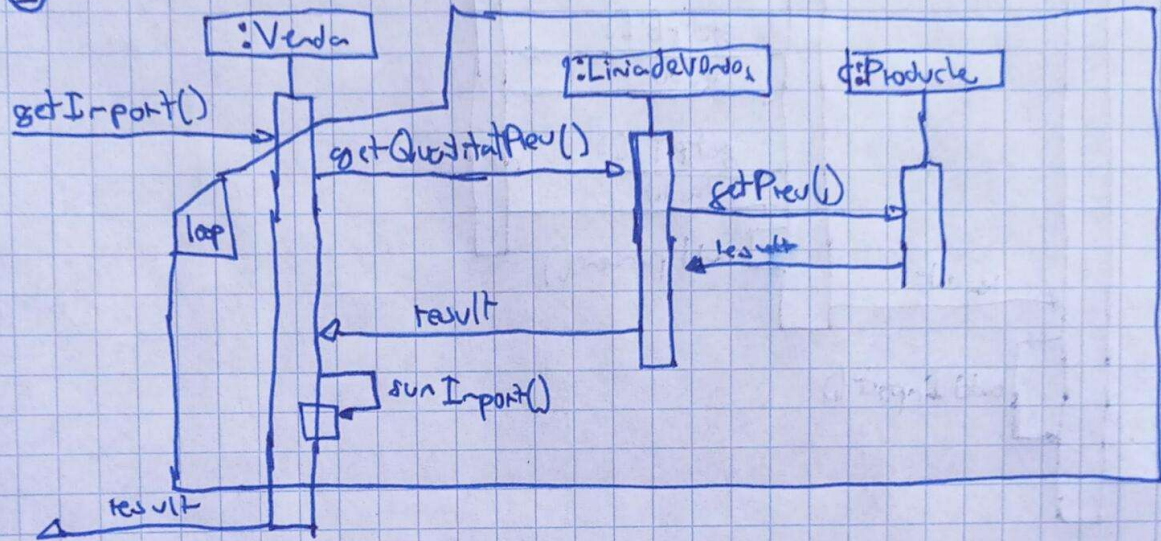 :Venda
:LiniadeVendas
:Producte
getImport()
getQuantitatPreu()
getPreu()
loop
result
result
sumImport()
result